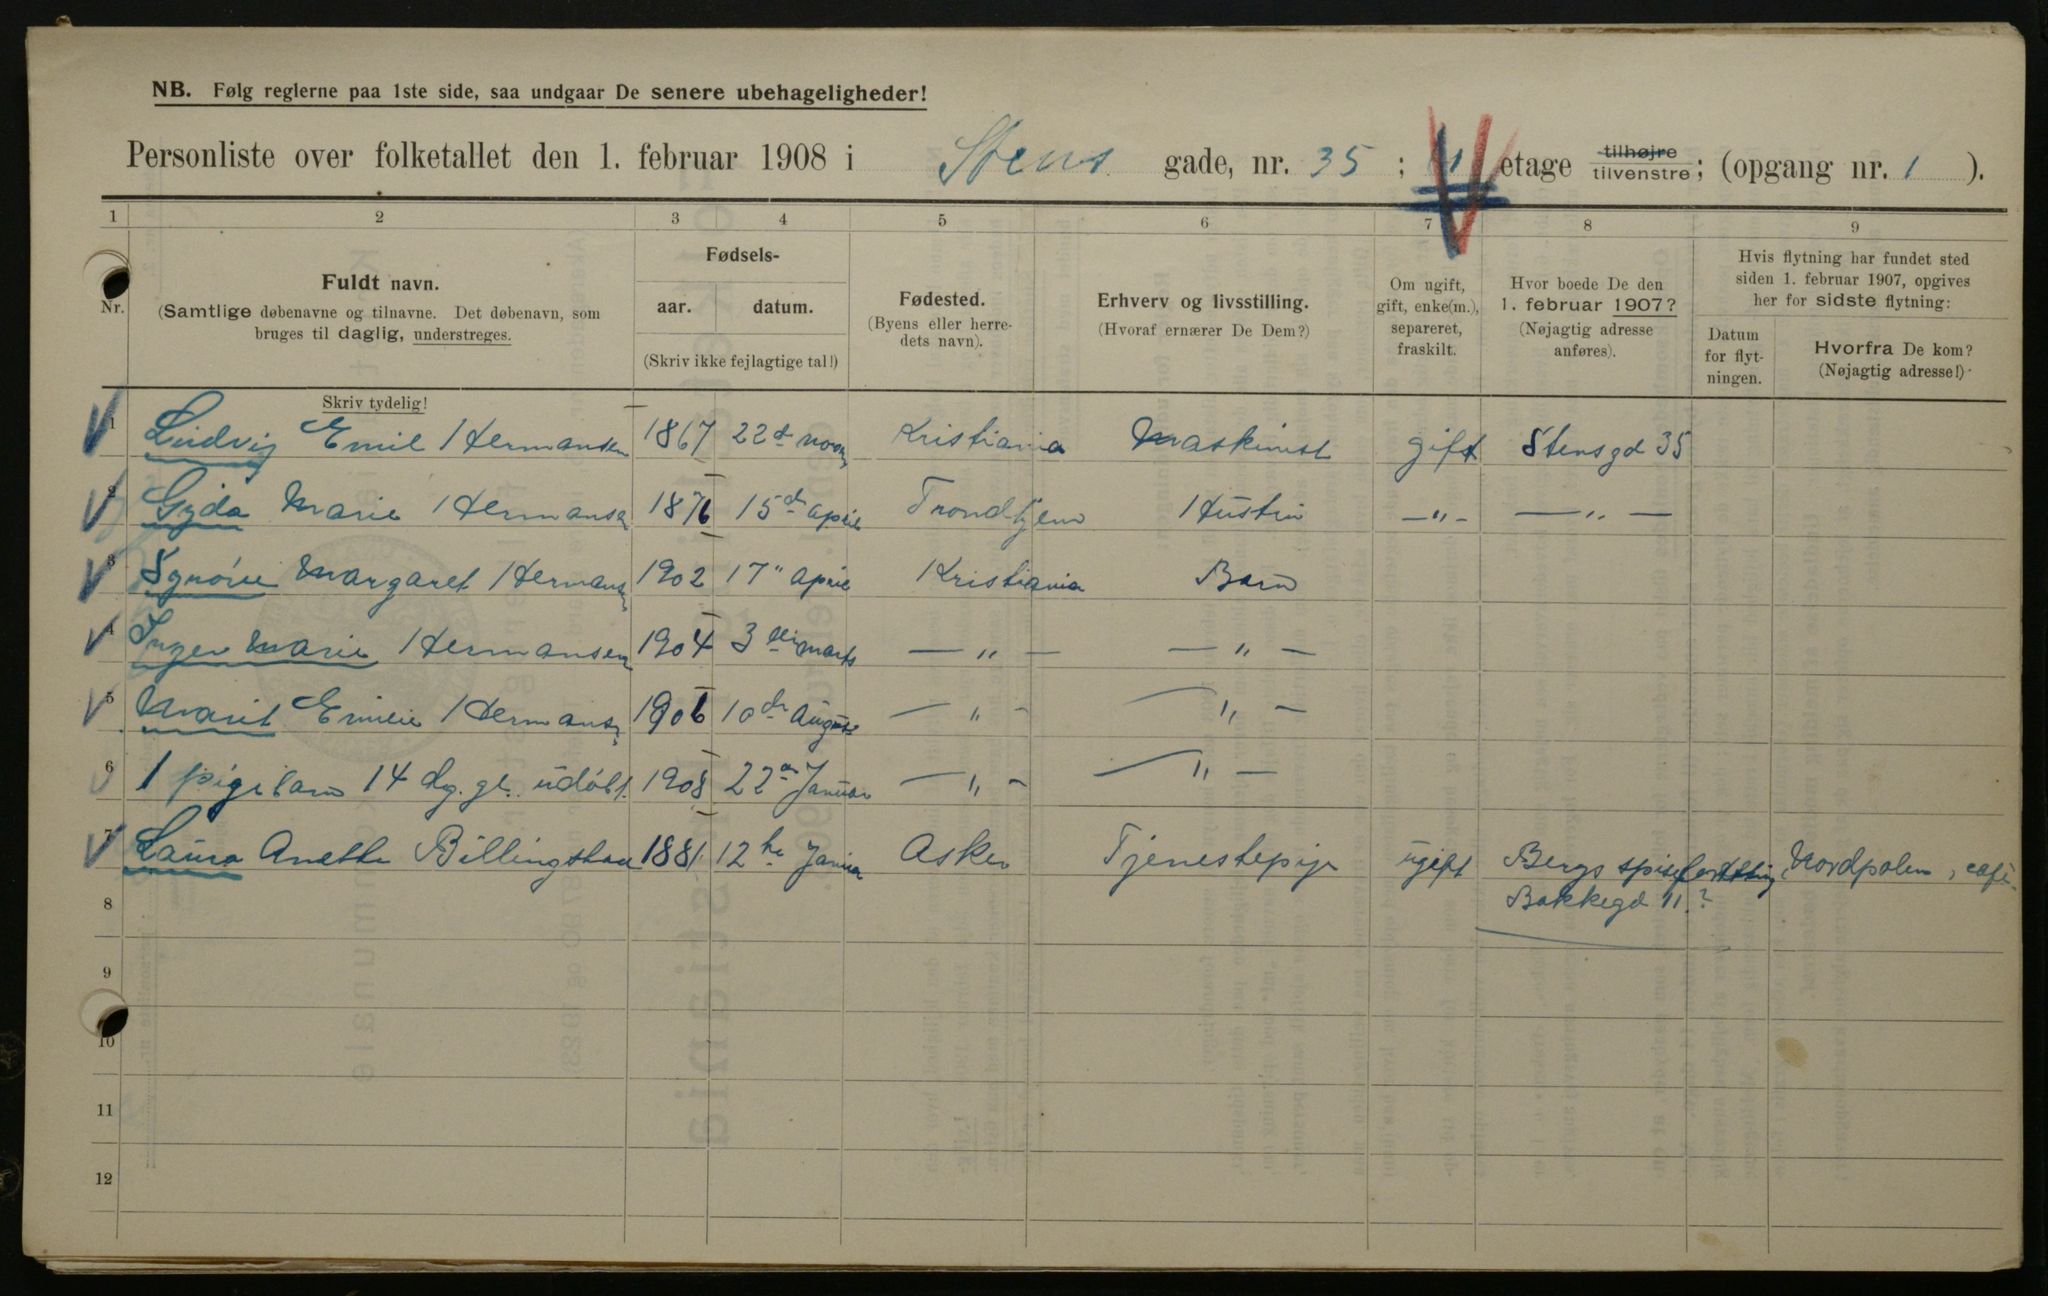 NB. Følg reglerne paa 1ste side, saa undgaar De senere ubehageligheder!
Personliste over folketallet den 1. februar 1908 i Stens gade, nr. 35 ; 1 etage tilhøjre tilvenstre; (opgang nr. 1 ).
1 2 3 4 5 6 7 8 9
Nr.
Fuldt navn.
(Samtlige døbenavne og tilnavne. Det døbenavn, som
bruges til daglig, understreges.
Skriv tydelig!
Fødsels-
aar. datum.
(Skriv ikke fejlagtige tal!)
Fødested.
(Byens eller herre-
dets navn).
Erhverv og livsstilling.
(Hvoraf ernærer De Dem?)
Om ugift,
gift, enke(m.),
separeret,
fraskilt.
Hvor boede De den
1. februar 1907?
(Nøjagtig adresse
anføres).
Hvis flytning har fundet sted
siden 1. februar 1907, opgives
her for sidste flytning:
Datum
for flyt-
ningen.
Hvorfra De kom?
(Nøjagtig adresse!)
1 Ludvig Emil Hermansen 1867 22d novb Kristiania Maskinist gift Stensgd 35
2 Gyda Marie Hermansen 1876 15d april Trondhjem Hustru —"— —"—
3 Synøve Margaret Hermans 1902 17" april Kristiania Barn
4 Inger Marie Hermansen 1904 3di marts —"— —"—
5 Marit Emilie Hermans 1906 10de August —"— —"—
6 1 pigebarn 14 dg. gl. udøbt. 1908 22d Januar —"— —"—
7 Laura Anette Billingstad 1881 12te Januar Asker Tjenestepige ugift Bergs Nordpolen, café
8 Bakkegd 11?
9
10
11
12